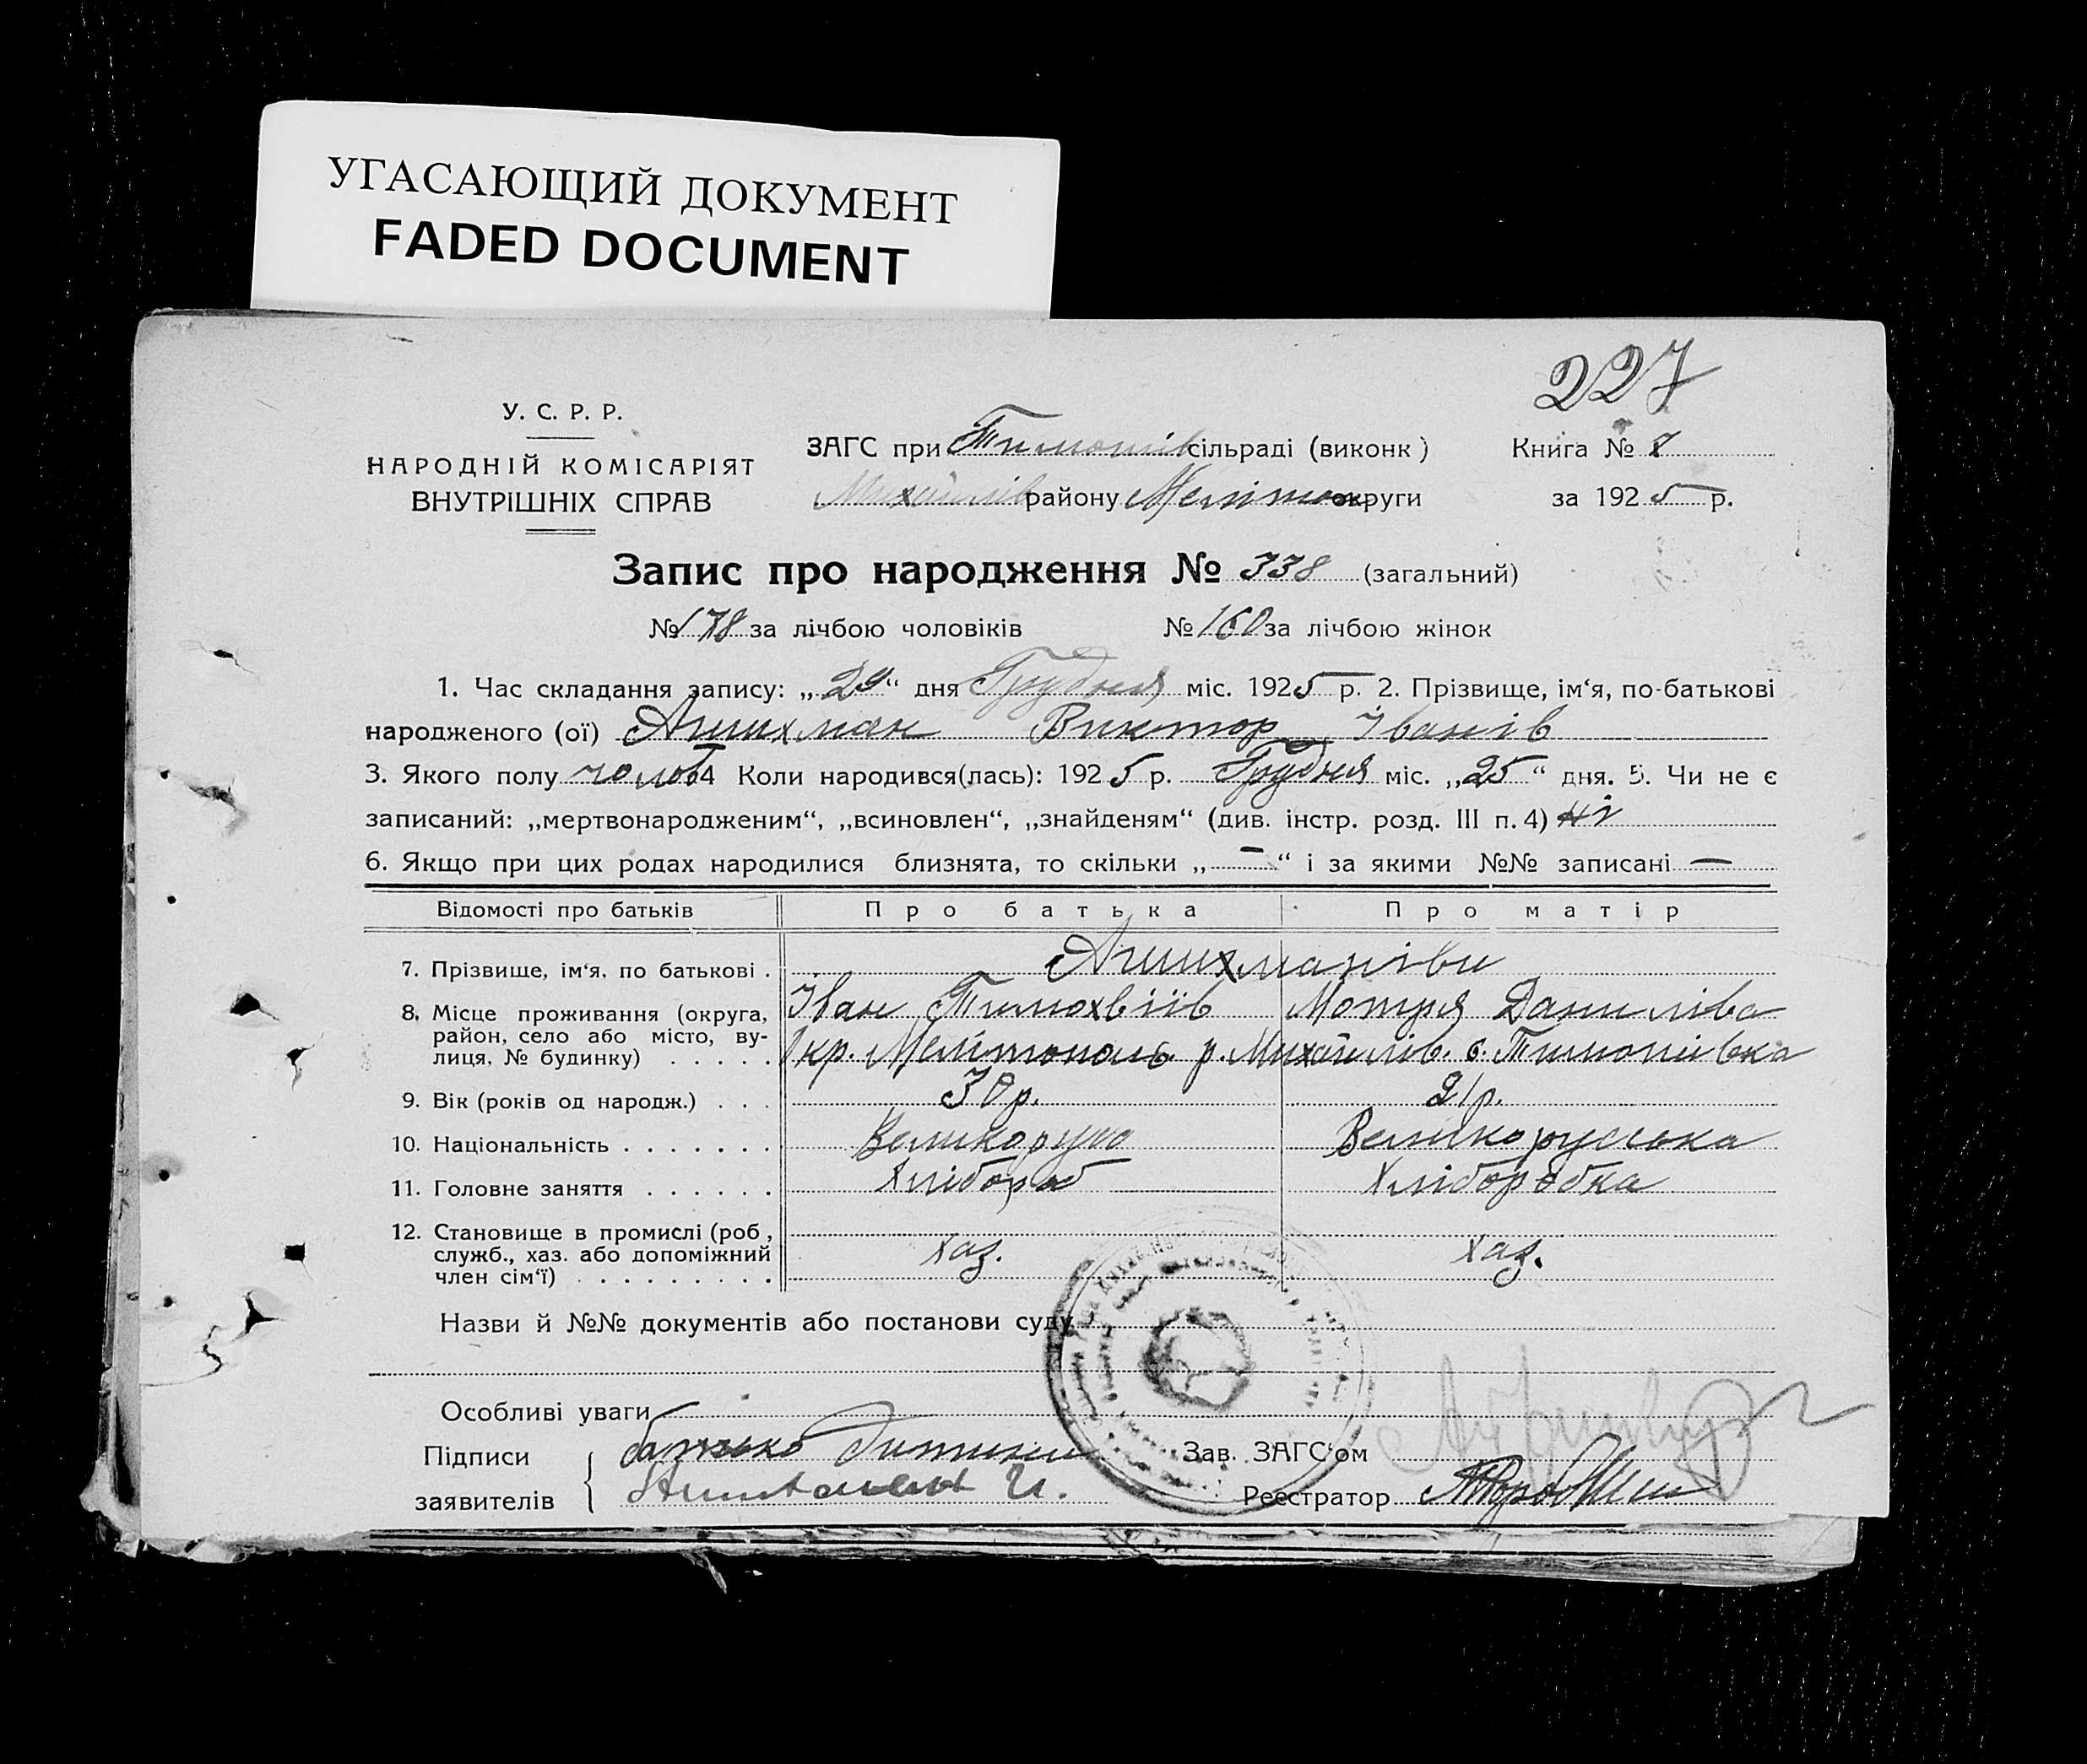 УГАСАЮЩИЙ ДОКУМЕНТ
FADED DOCUMENT
227
У. С. Р. Р.
НАРОДНІЙ КОМІСАРІЯТ
ВНУТРІШНІХ СПРАВ
ЗАГС при Тимошів сільраді (виконк)
Михайлів району Мелітоп округи
Книга №
за 1925 р.
Запис про народження № 338 (загальний)
№ 178 за лічбою чоловіків № 160 за лічбою жінок
1. Час складання запису: „29“ дня Грудня міс. 1925 р. 2. Прізвище, ім‘я, по-батькові
народженого (ої) Ашихман Виктор Іванів
3. Якого полу чолов 4 Коли народився(лась): 1925 р. Грудня міс. „25“ дня. 5. Чи не є
записаний: „мертвонародженим“, „всиновлен“, „знайденям“ (див. інстр. розд. III п. 4) ні
6. Якщо при цих родах народилися близнята, то скільки „—“ і за якими №№ записані —
Відомості про батьків Про батька Про матір
7. Прізвище, ім‘я, по батькові . Ашихманіви
Іван Тимохвіів Мотря Данилівa
8. Місце проживання (округа, район, село або місто, ву-
лиця, № будинку) . . . . . Окр. Мелітополь р. Михайлів. с. Тимошівка
9. Вік (років од народж.) . . . 30 р. 21 р.
10. Національність . . . . . . . Великорус Великоруська
11. Головне заняття . . . . . . Хлібороб Хлібороbка
12. Становище в промислі (роб, служб., хаз. або допоміжний
член сім‘ї) . . . . . . . . . хаз. хаз.
Назви й №№ документів або постанови суду
Особливі уваги
Підписи батько дитини Зав. ЗАГС‘ом
заявителів И. Реєстратор